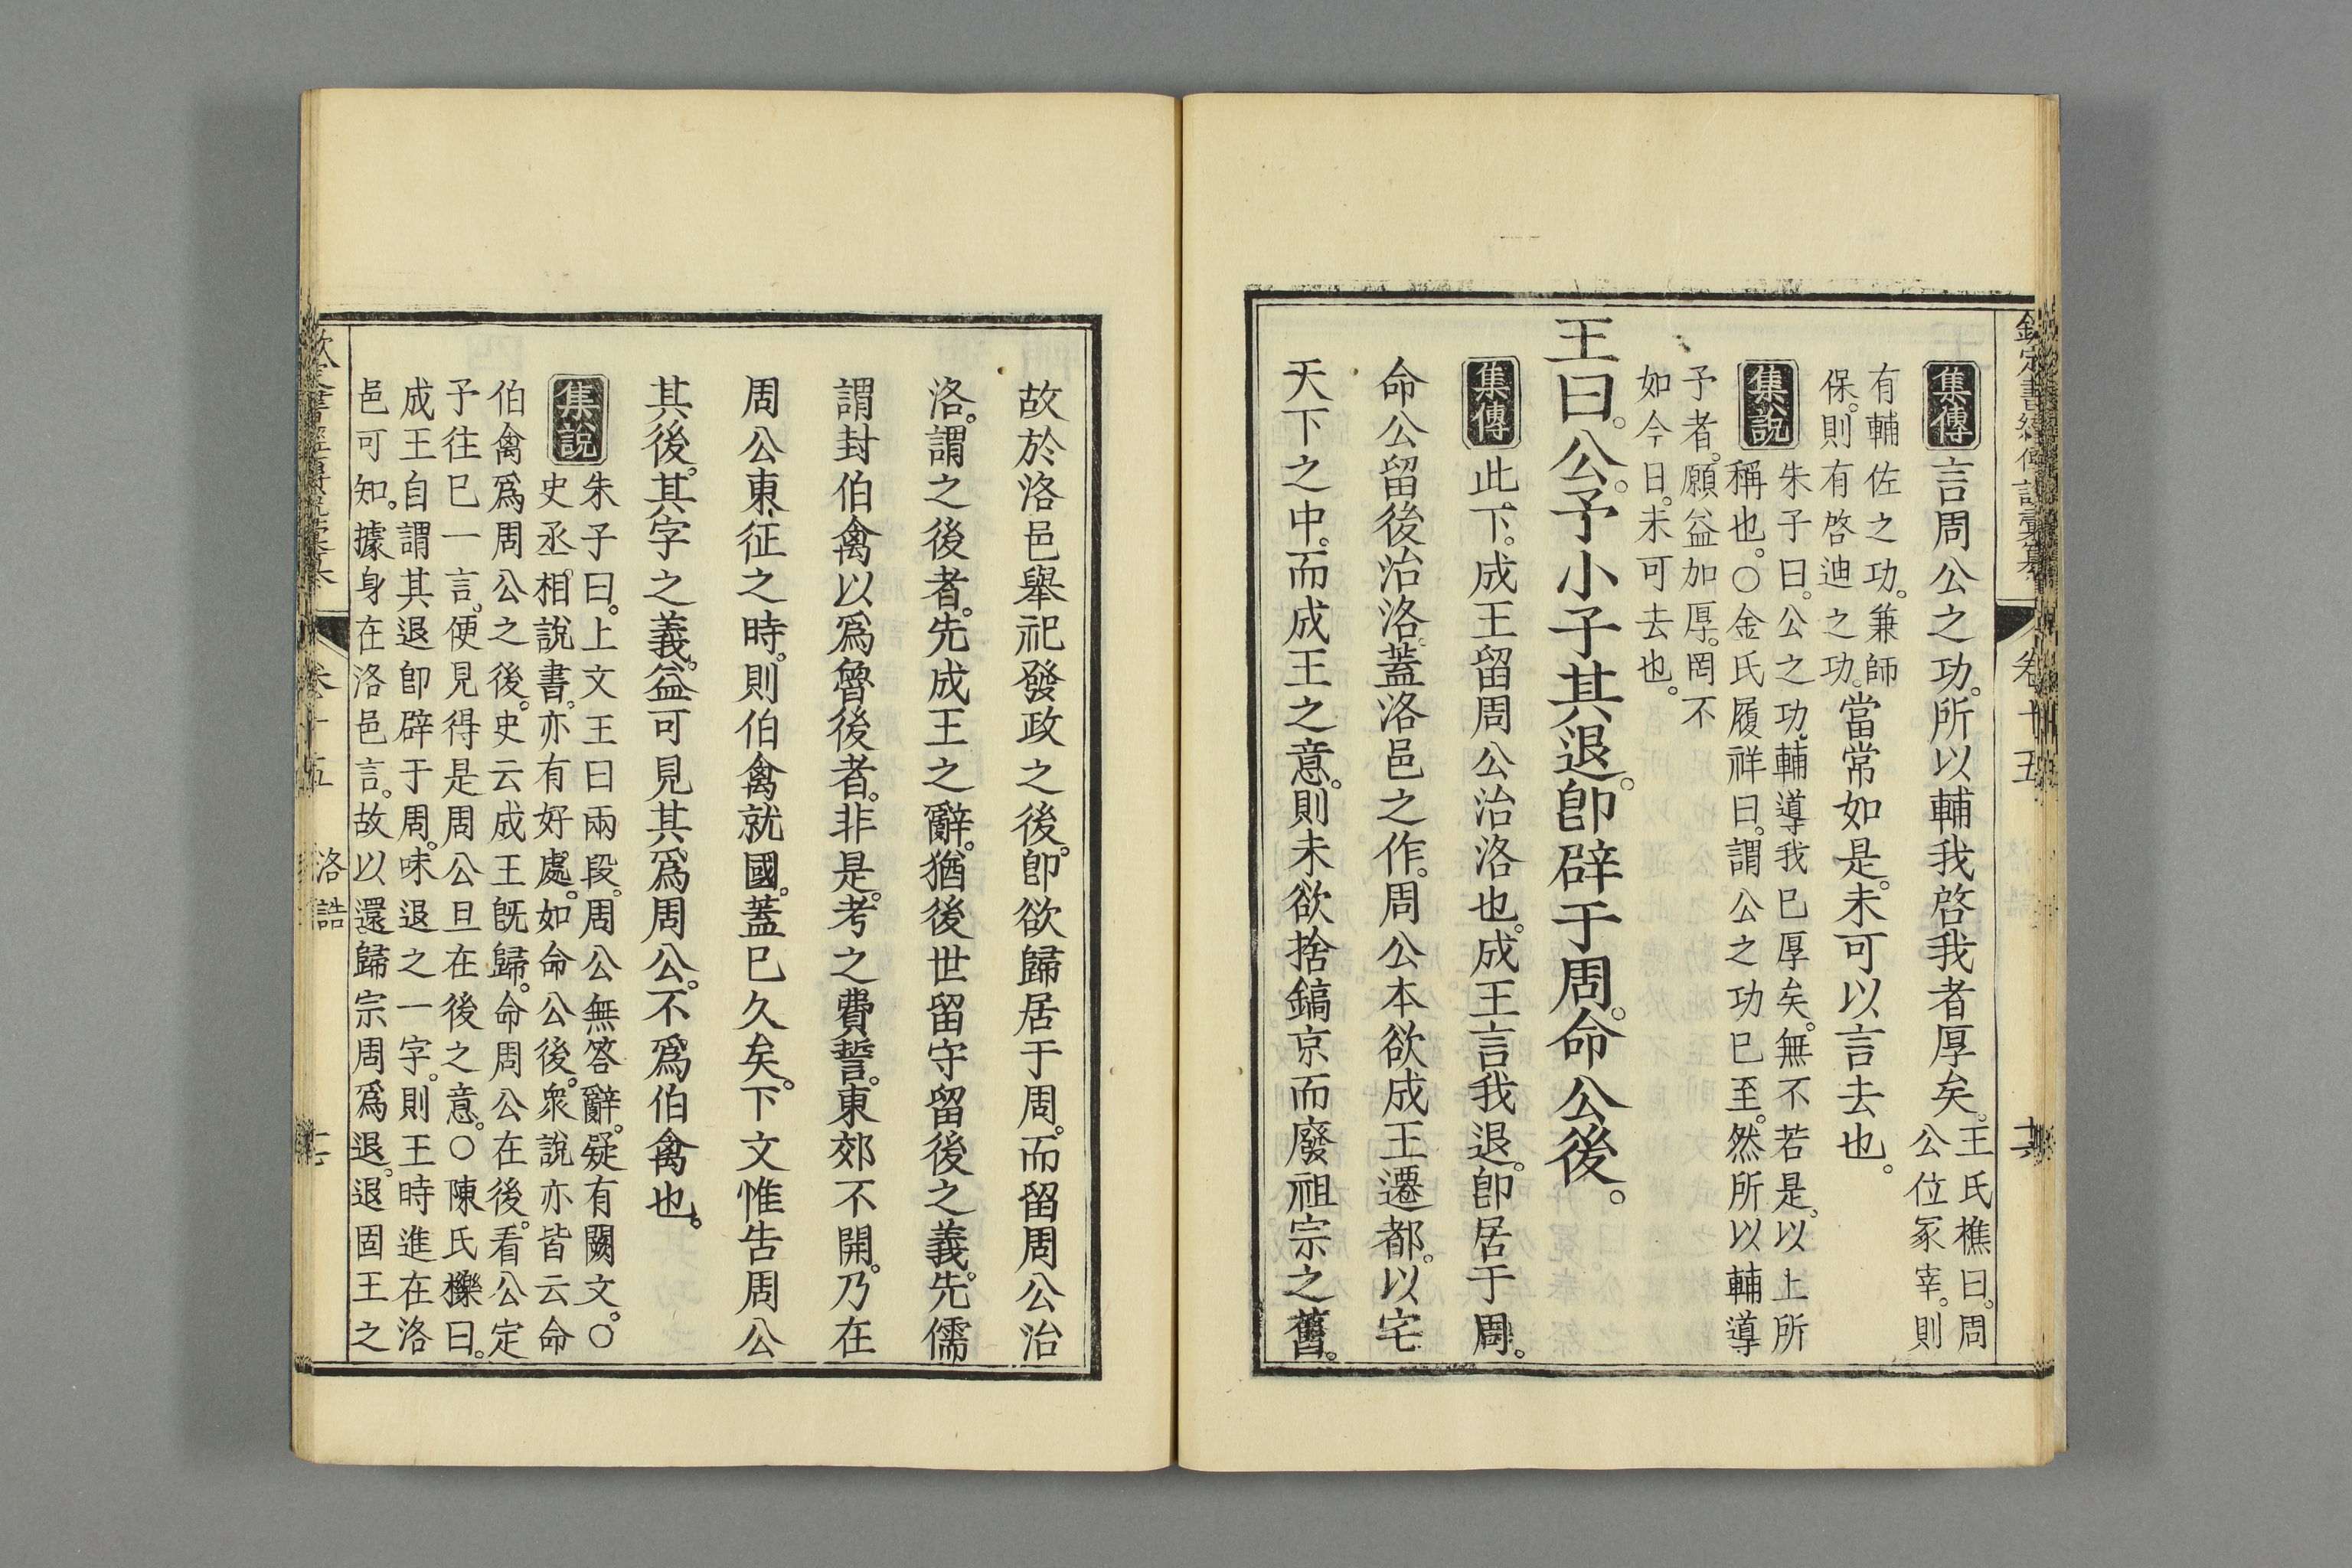 欽定書經傳說彙纂 卷十五
集傳 言周公之功。所以輔我啓我者厚矣。王氏樵曰。周
公位冢宰。則
有輔佐之功。兼師
保。則有啓迪之功。當常如是。未可以言去也。
集說 朱子曰。公之功。輔導我已厚矣。無不若是。以上所
稱也。○金氏履祥曰。謂公之功已至。然所以輔導
予者。願益加厚。罔不
如今日。未可去也。
王曰。公。予小子其退。卽辟于周。命公後。
集傳 此下。成王留周公治洛也。成王言我退。卽居于周。
命公留後治洛。蓋洛邑之作。周公本欲成王遷都。以宅
天下之中。而成王之意。則未欲捨鎬京而廢祖宗之舊。
故於洛邑舉祀發政之後。卽欲歸居于周。而留周公治
洛。謂之後者。先成王之辭。猶後世留守留後之義。先儒
謂封伯禽以爲魯後者。非是。考之費誓。東郊不開。乃在
周公東征之時。則伯禽就國。蓋已久矣。下文惟告周公
其後。其字之義。益可見其爲周公。不爲伯禽也。
集說 朱子曰。上文王曰兩段。周公無答辭。疑有闕文。○
史丞相說書。亦有好處。如命公後。衆說亦皆云命
伯禽爲周公之後。史云成王旣歸。命周公在後。看公定
予往已一言。便見得是周公且在後之意。○陳氏櫟曰。
成王自謂其退卽辟于周。味退之一字。則王時進在洛
邑可知。據身在洛邑言。故以還歸宗周爲退。退固王之
卷十五 洛誥